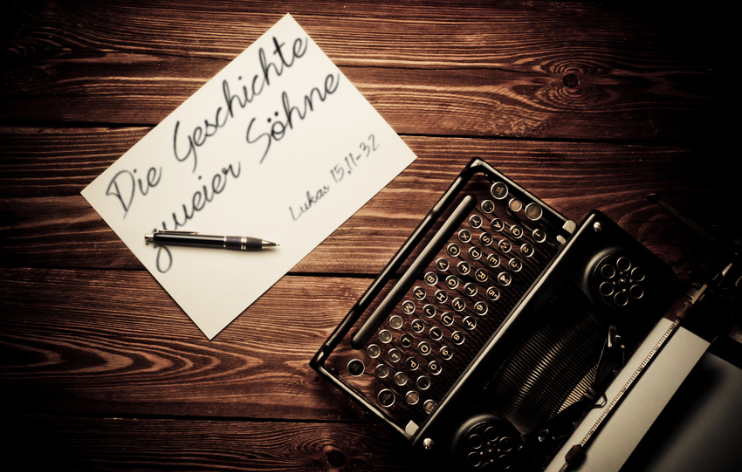 Die Geschichte
zweier Söhne
Lukas 15,11-32